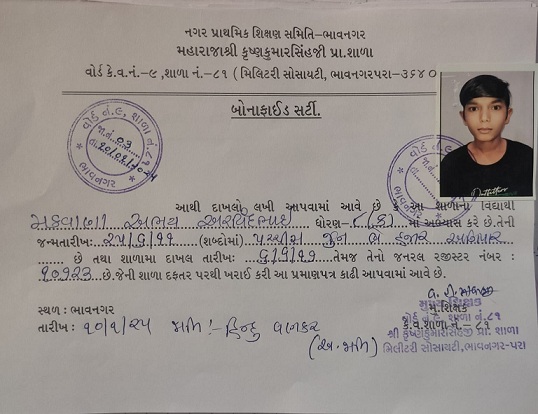 નગર પ્રાથમિક શિક્ષણ સમિતિ-ભાવનગર
મહારાજાશ્રી કૃષ્ણકુમારસિંહજી પ્રા.શાળા
વોર્ડ કે.વ.નં.-૯, શાળા નં.-૮૧ ( મિલિટરી સોસાયટી, ભાવનગરપરા-૩૬૪૦
બોનાફાઈડ સર્ટી.
વોર્ડ નં.૯, શાળા નં.૮૧
જા.નં. 03
તા.
ભાવનગર
આથી દાખલો લખી આપવામાં આવે છે કે આ શાળાના વિદ્યાથી
મકવાણા અભય અરવિંદભાઈ ધોરણ- ૮ (ક) માં અભ્યાસ કરે છે.તેની
જન્મતારીખ: ૨૫/૬/૧૧ (શબ્દોમાં) પચ્ચીસ જૂન બે હજાર અગિયાર
છે તથા શાળામાં દાખલ તારીખ : તેમજ તેનો જનરલ રજીસ્ટર નંબર :
૧૦૧૨૩ છે.જેની શાળા દફતર પરથી ખરાઈ કરી આ પ્રમાણપત્ર કાઢી આપવામાં આવે છે.
સ્થળ : ભાવનગર
તારીખ : ૧૦/૧/૨૫ જાતિ :- હિન્દુ વણકર
(અ.જાતિ)
મુખ્ય શિક્ષક
મુ.શિક્ષક
વોર્ડ નં.૯, શાળા નં.૮૧
કે.વ.શાળા નં.-૮૧
શ્રી કૃષ્ણકુમારસિંહજી પ્રા. શાળા
મિલીટરી સોસાયટી,ભાવનગર-પરા